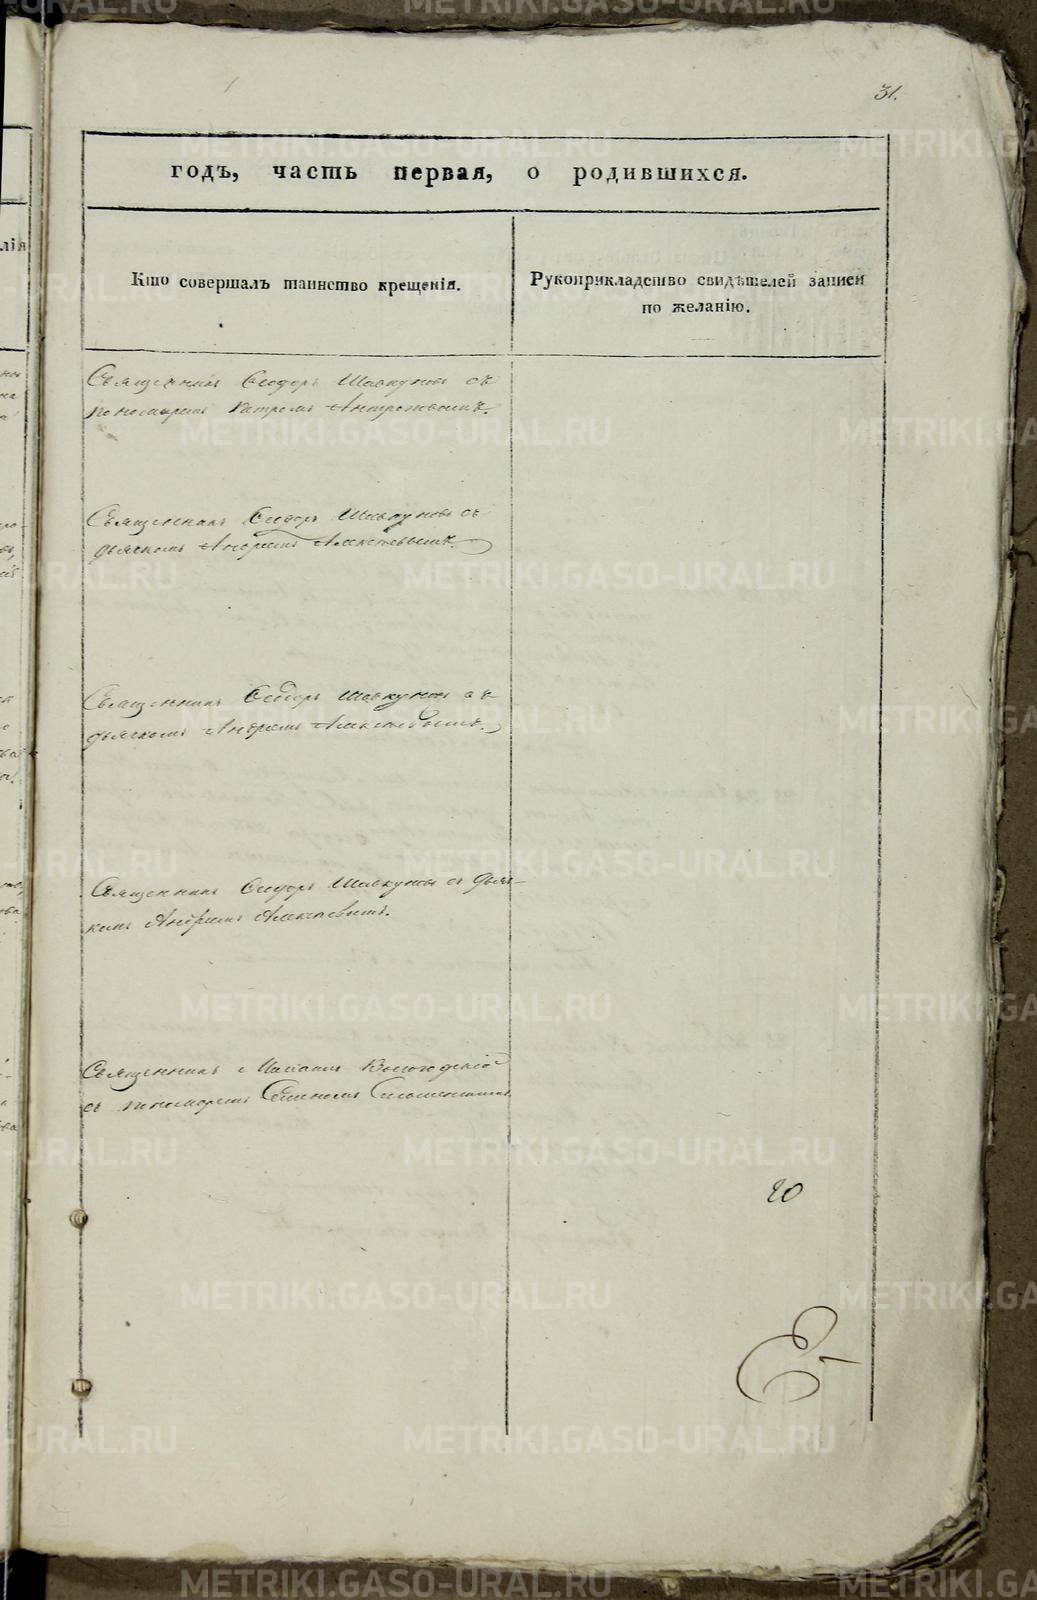 31.
годъ, часть первая, о родившихся.
Кто совершалъ таинство крещенія.
Рукоприкладство свидѣтелей записи
по желанію.
Священникъ Ѳеодоръ Шавкуновъ съ
пономаремъ Петромъ Антроповымъ.
Священникъ Ѳеодоръ Шавкуновъ съ
дьячкомъ Андреемъ Алексѣевымъ.
Священникъ Ѳеодоръ Шавкуновъ съ
дьячкомъ Андреемъ Алексѣевымъ.
Священникъ Ѳеодоръ Шавкуновъ съ дьяч-
комъ Андреемъ Алексѣевымъ.
Священникъ Вологодскій
съ пономаремъ Семеномъ
20
METRIKI.GASO-URAL.RU